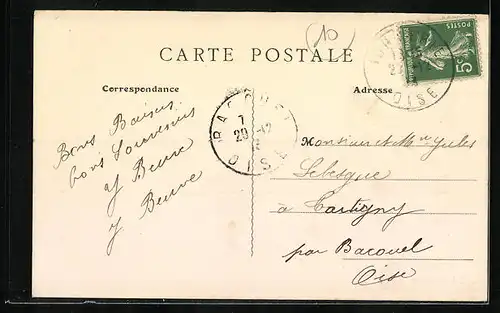 10
CARTE POSTALE
POSTES
5c
Correspondance
Adresse
OISE
BACOUEL
7
29 -12
OISE
Bons Baisers
bons Souvenirs
Y Beuve
Y Beuve
Monsieur et Mme Jules
Lebesgue
à Tartigny
par Bacouel
Oise